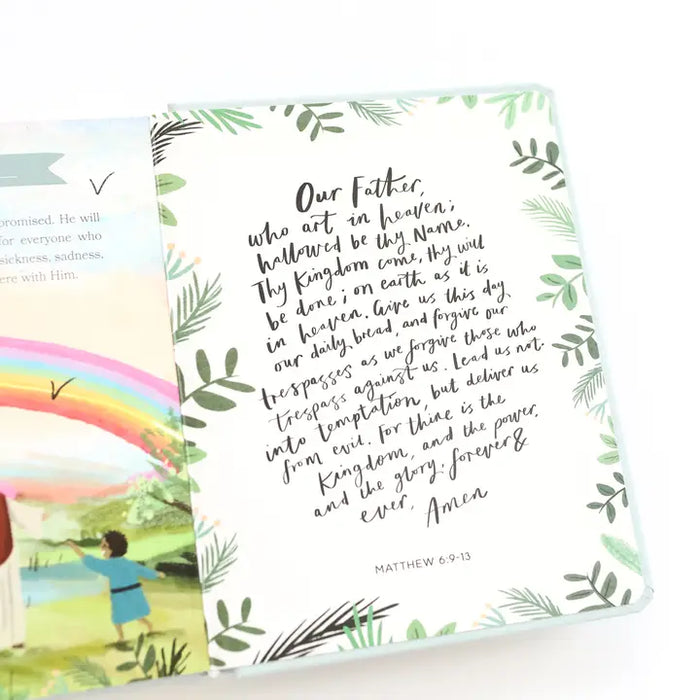 promised. He will
for everyone who
sickness, sadness,
here with Him.
Our Father,
who art in heaven;
hallowed be thy Name.
Thy Kingdom come, thy will
be done; on earth as it is
in heaven. Give us this day
our daily bread, and forgive our
trespasses as we forgive those who
trespass against us. Lead us not
into temptation, but deliver us
from evil. For thine is the
Kingdom, and the power,
and the glory; forever &
ever, Amen
MATTHEW 6:9-13